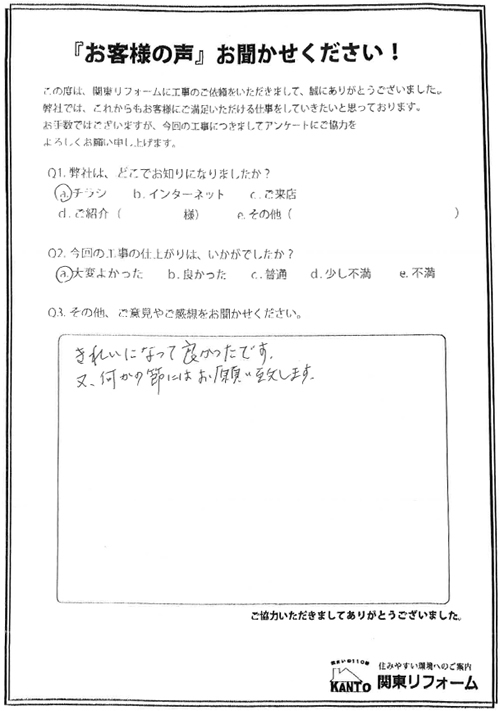 『お客様の声』お聞かせください！
この度は、関東リフォームに工事のご依頼をいただきまして、誠にありがとうございました。
弊社では、これからもお客様にご満足いただける仕事をしていきたいと思っております。
お手数ではございますが、今回の工事につきましてアンケートにご協力を
よろしくお願い申し上げます。
Q1. 弊社は、どこでお知りになりましたか？
a. チラシ b. インターネット c. ご来店
d. ご紹介（ 様） e. その他（ ）
Q2. 今回の工事の仕上がりは、いかがでしたか？
a. 大変よかった b. 良かった c. 普通 d. 少し不満 e. 不満
Q3. その他、ご意見やご感想をお聞かせください。
きれいになって良かったです。
又、何かの節にはお願い致します。
ご協力いただきましてありがとうございました。
住みやすい環境へのご案内
KANTO 関東リフォーム